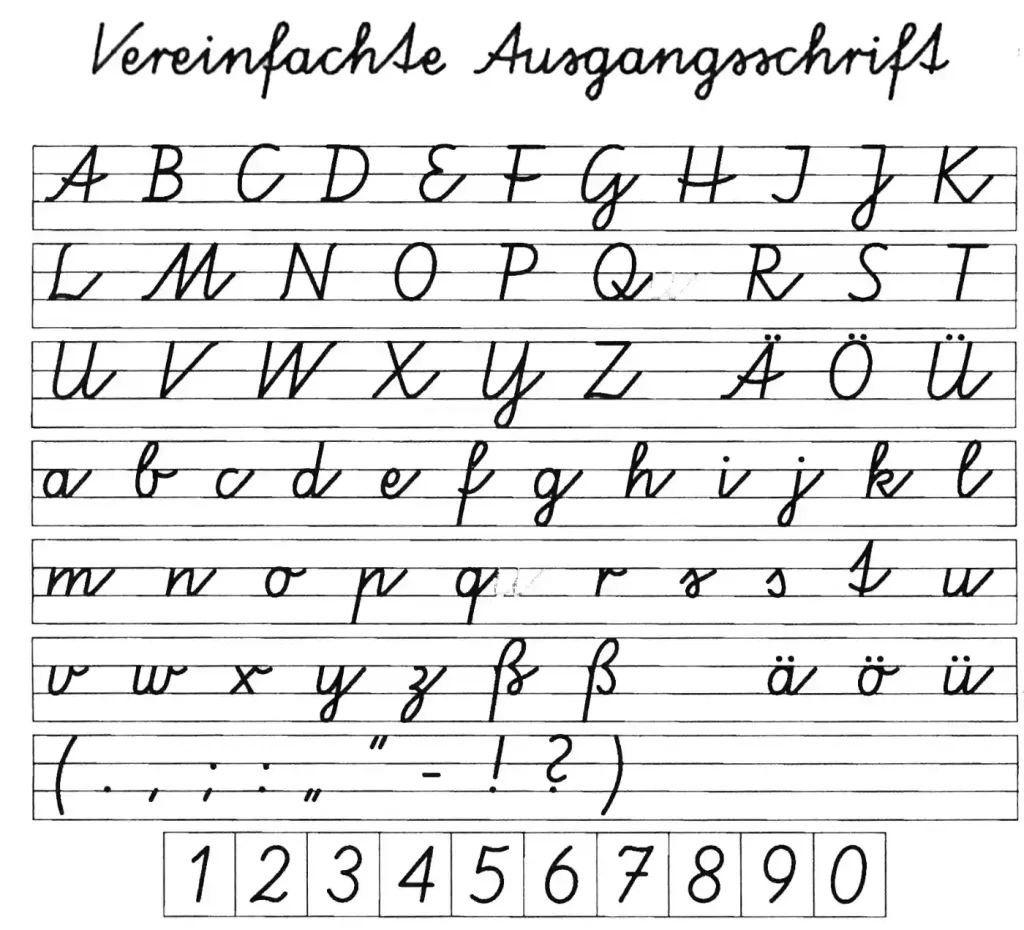 Vereinfachte Ausgangsschrift
A B C D E F G H I J K
L M N O P Q R S T
U V W X Y Z Ä Ö Ü
a b c d e f g h i j k l
m n o p q r s s t u
v w x y z ß ß ä ö ü
( . , ; : „ " - ! ? )
1 2 3 4 5 6 7 8 9 0